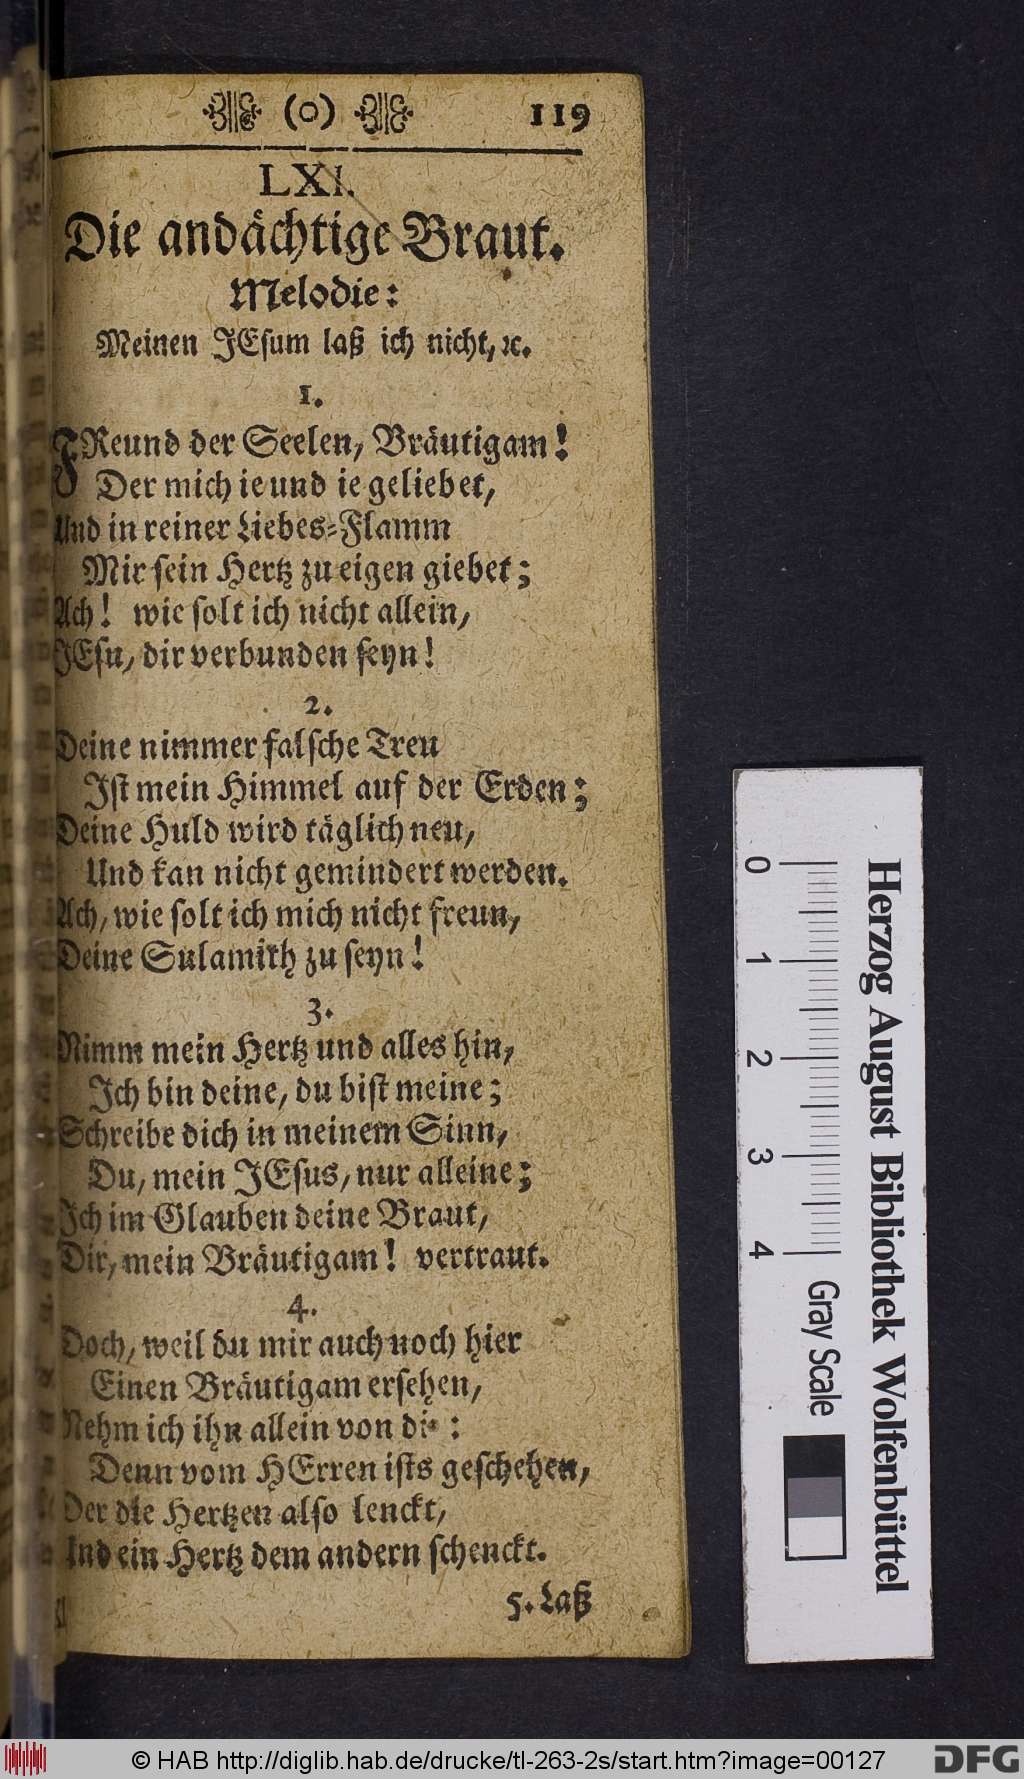 (o) 119
LXI.
Die andächtige Braut.
Melodie:
Meinen JEsum laß ich nicht, ꝛc.
1.
FReund der Seelen, Bräutigam!
Der mich ie und ie geliebet,
Und in reiner Liebes-Flamm
Mir sein Hertz zu eigen giebet;
Ach! wie solt ich nicht allein,
JEsu, dir verbunden seyn!
2.
Deine nimmer falsche Treu
Ist mein Himmel auf der Erden;
Deine Huld wird täglich neu,
Und kan nicht gemindert werden.
Ach, wie solt ich mich nicht freun,
Deine Sulamith zu seyn!
3.
Nimm mein Hertz und alles hin,
Ich bin deine, du bist meine;
Schreibe dich in meinem Sinn,
Du, mein JEsus, nur alleine;
Ich im Glauben deine Braut,
Dir, mein Bräutigam! vertraut.
4.
Doch, weil du mir auch noch hier
Einen Bräutigam ersehen,
Nehm ich ihn allein von dir:
Denn vom HErren ists geschehen,
Der die Hertzen also lenckt,
Und ein Hertz dem andern schenckt.
5. Laß
Herzog August Bibliothek Wolfenbüttel
0 1 2 3 4 Gray Scale
© HAB http://diglib.hab.de/drucke/tl-263-2s/start.htm?image=00127
DFG